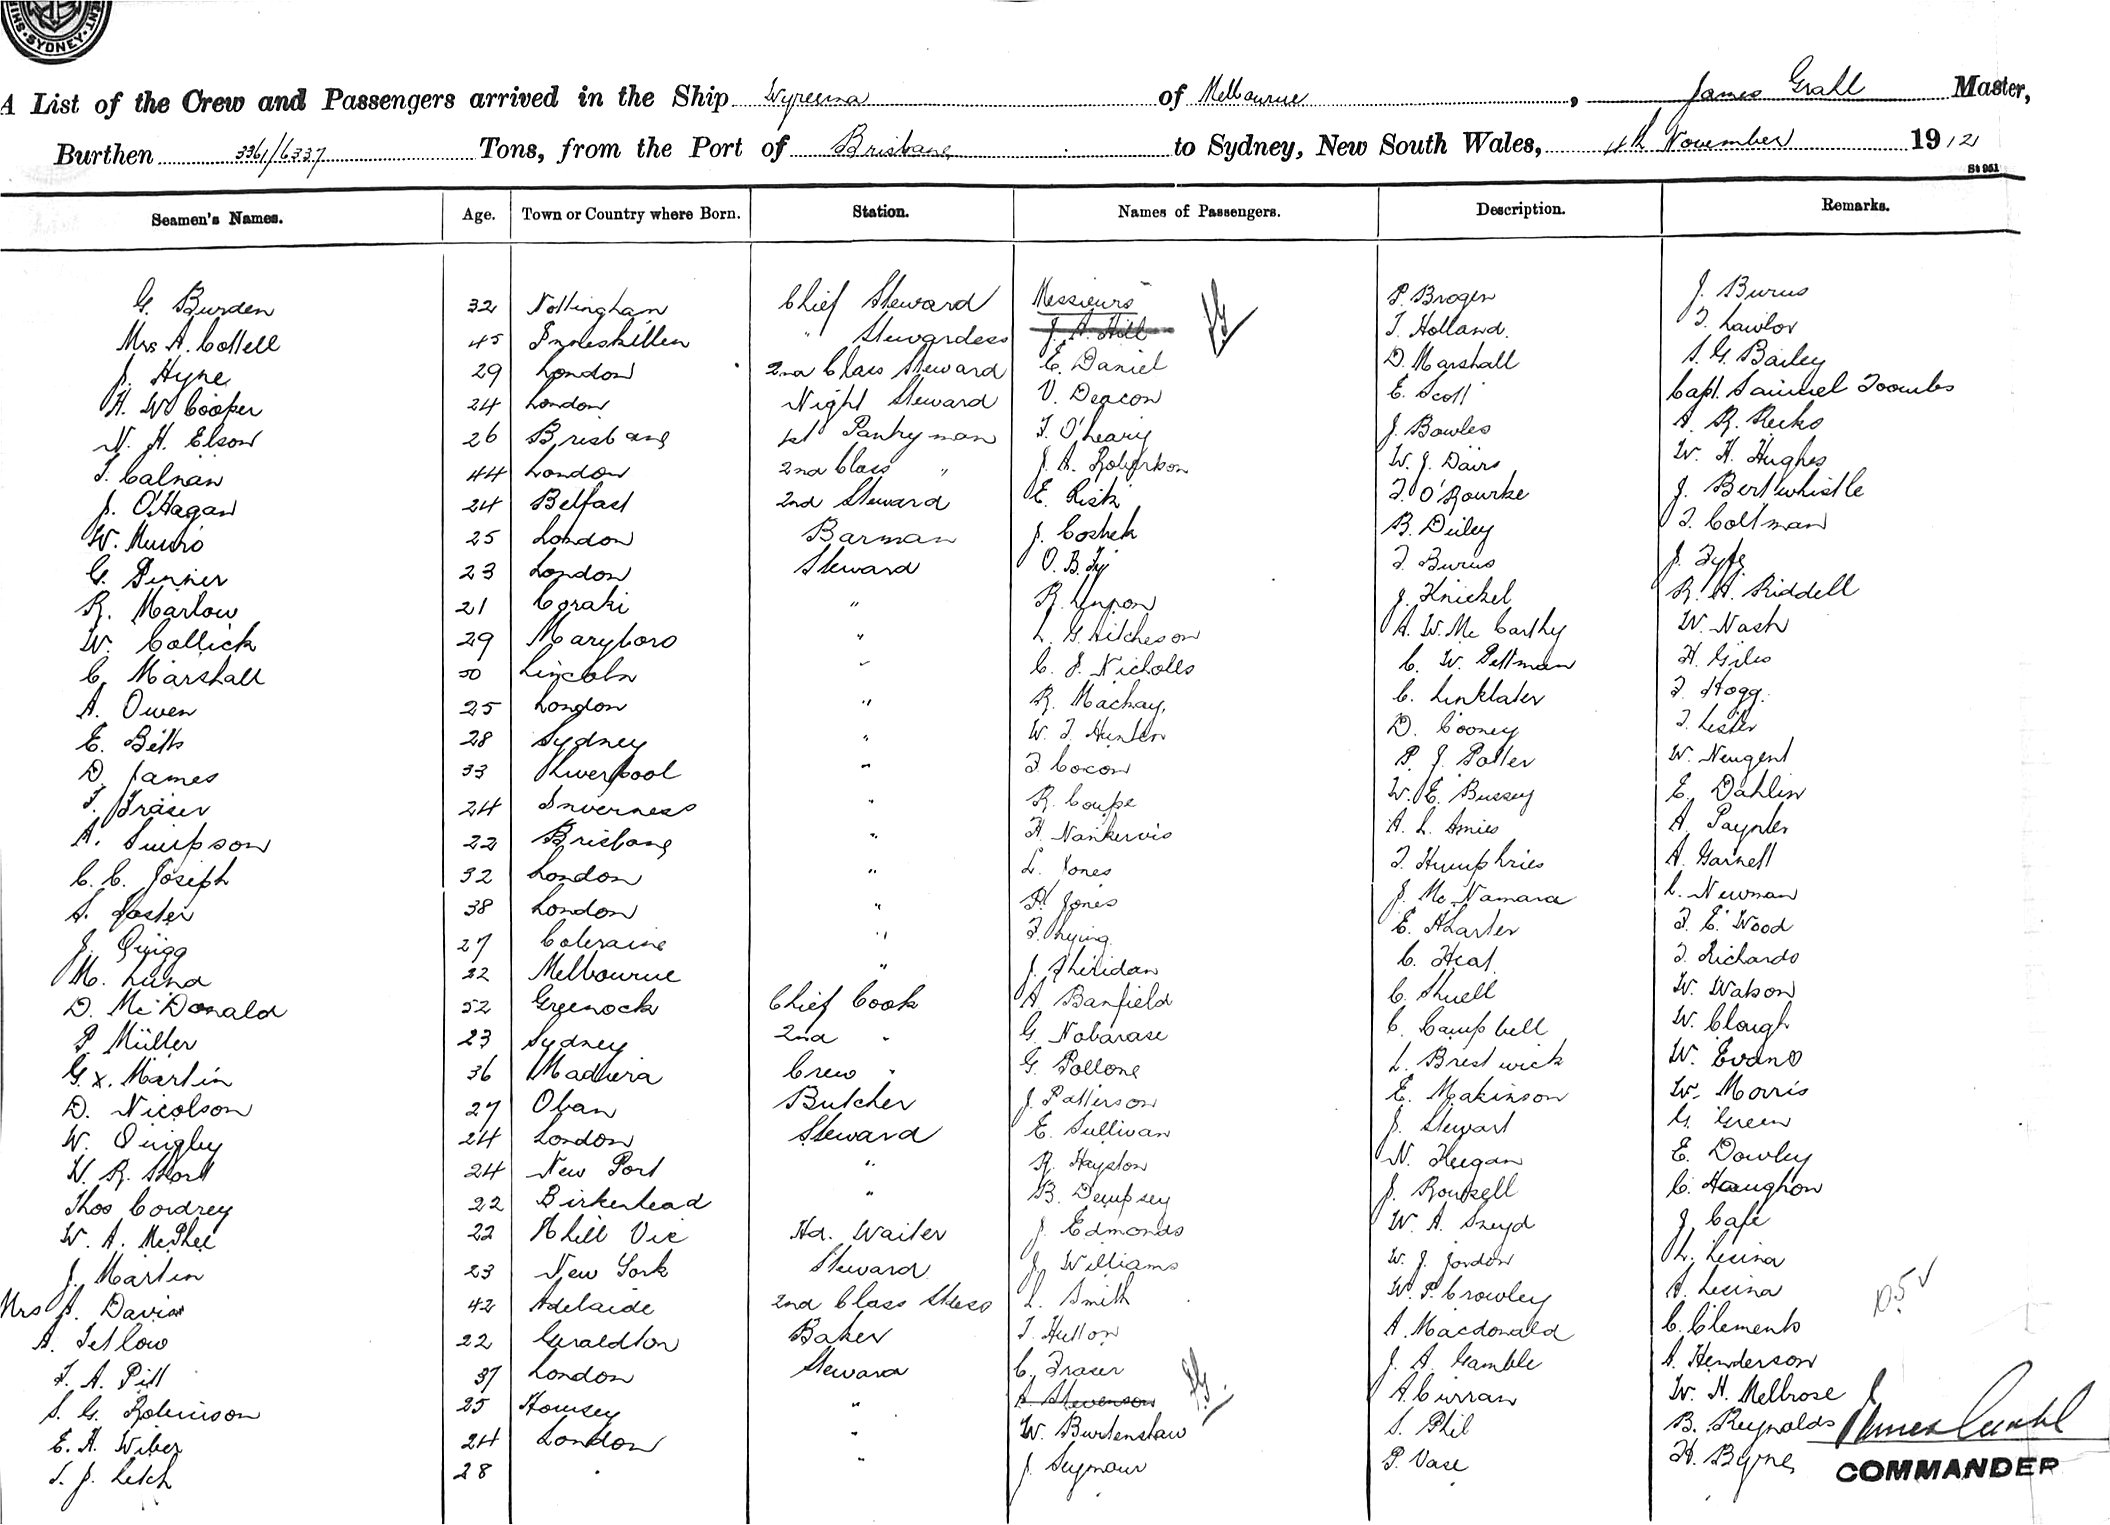 SYDNEY
A List of the Crew and Passengers arrived in the Ship Wyreema of Melbourne, James Grahl Master,
Burthen 3361/6337 Tons, from the Port of Brisbane to Sydney, New South Wales, 4th November 1912
St 951
Seamen's Names. Age. Town or Country where Born. Station. Names of Passengers. Description. Remarks.
G. Burden 32 Nottingham Chief Steward Messieurs P. Brogen J. Burns
Mrs A. Cottell 45 Inneskillen " Stewardess J. A. Hill T. Holland. T. Lawlor
J. Hyne 29 London 2nd Class Steward E. Daniel D. Marshall S. G. Bailey
H. W. Cooper 24 London Night Steward V. Deacon E. Scott Capt. Samuel Toombs
N. H. Elson 26 Brisbane 1st Pantryman T. O'Leary J. Bowles A. R. Reeks
T. Calnan 44 London 2nd Class " J. A. Robertson W. J. Davis W. H. Hughes
J. O'Hagan 24 Belfast 2nd Steward E. Risk T. O'Rourke J. Bertwhistle
W. Munro 25 London Barman J. Coshek B. Duley T. Coltman
G. Dinner 23 London Steward O. B. T. Burns J. Fyfe
R. Marlow 21 Coraki " R. J. Knickel R. A. Riddell
W. Collick 29 Maryboro " L. G. Hitcheson A. W. Mc Carthy W. Nash
C. Marshall 50 Lincoln " C. J. Nicholls C. W. Pettman H. Giles
A. Owen 25 London " R. Mackay. C. Linklater T. Hogg.
E. Betts 28 Sydney " W. T. Hunter D. Cooney T. Lister
D. James 33 Liverpool " T. Cocon P. J. Potter W. Neugent
T. Fraser 24 Inverness " R. Coupe W. E. Bussey E. Dahlin
A. Simpson 22 Brisbane " H. Nankervis A. L. Amies A. Paynter
C. C. Joseph 32 London " L. Jones T. Humphries A. Garnett
A. Foster 38 London " H. Jones J. Mc Namara L. Newman
J. Quigg 27 Coleraine " T. Lying E. T. E. Wood
M. Lund 22 Melbourne " J. Sheridan C. Heat. T. Richards
D. Mc Donald 52 Greenock Chief Cook A. Banfield C. Shuell W. Watson
P. Müller 23 Sydney 2nd " G. Nobarase C. Campbell W. Clough
G. x. Martin 36 Madiera Crew " G. Pollone L. Brestwick W. Evans
D. Nicolson 27 Oban Butcher J. Patterson E. Makinson W. Morris
W. Quigley 24 London Steward E. Sullivan J. Stewart G. Green
W. R. Short 24 New Port " R. Hayston N. Keegan E. Dowley
Thos Cordrey 22 Birkenhead " B. Dempsey J. Rousell C. Haughton
W. A. McPhee 22 Rhill Vic Hd. Waiter J. Edmonds W. A. Sneyd J. Cafe
J. Martin 23 New York Steward J. Williams W. J. Jordon L. Levina
Mrs A. Davis 42 Adelaide 2nd Class Stdess L. Smith W. P. Crowley A. Levina
A. Tetlow 22 Geraldton Baker T. Hutton A. Macdonald C. Clements
T. A. Pitt 37 London Steward C. Fraser J. A. Gamble A. Henderson
S. G. Robinson 25 Hornsey " A. Stevenson A. Curran W. H. Mellrose
E. A. Wiber 24 London " W. Burtenshaw S. Phil B. Reynolds
S. J. Letch 28 " J. Seymour P. Vase H. Byrne
105
James Grahl
COMMANDER